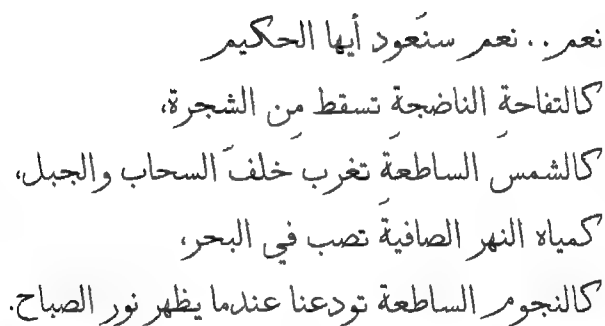 نعم.. نعم سنَعود أيها الحكيم
كالتفاحةِ الناضجةِ تسقط مِن الشجرة،
كالشمسَ الساطعةَ تغرب خلفَ السحاب والجبل،
كمياه النهر الصافيةَ تصب في البحر،
كالنجوم الساطعة تودعنا عندما يظهر نور الصباح.